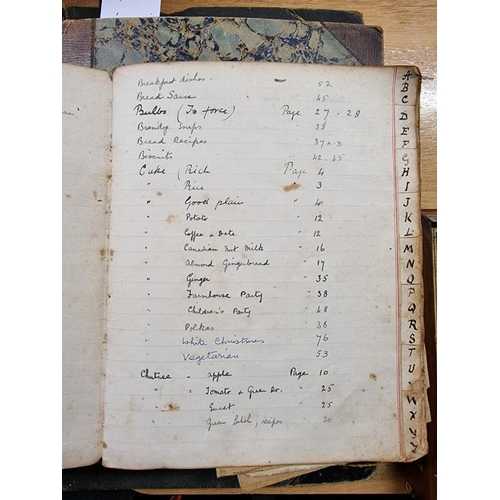 Breakfast dishes - 52
Bread Sauce 45
Bulbs (To force) Page 27 - 28
Brandy Snaps " 38
Bread Recipes 37
Biscuits 42-45
Cake (Rich Page 4
" Rice " 3
" Good plain " 4
" Potato " 12
" Coffee & Date " 12
" Canadian Nut Milk " 16
" Almond Gingerbread " 17
" Ginger " 35
" Farmhouse Party " 38
" Children's Party " 48
" Polkas " 38
" White Christmas " 76
" Vegetarian 53
Chutnee - apple Page 10
" " Tomato & Green Do. " 25
" Sweet " 25
" Green label, 30
A
B
C
D
E
F
G
H
I
J
K
L
M
N
O
P
Q
R
S
T
U
W
X
Y